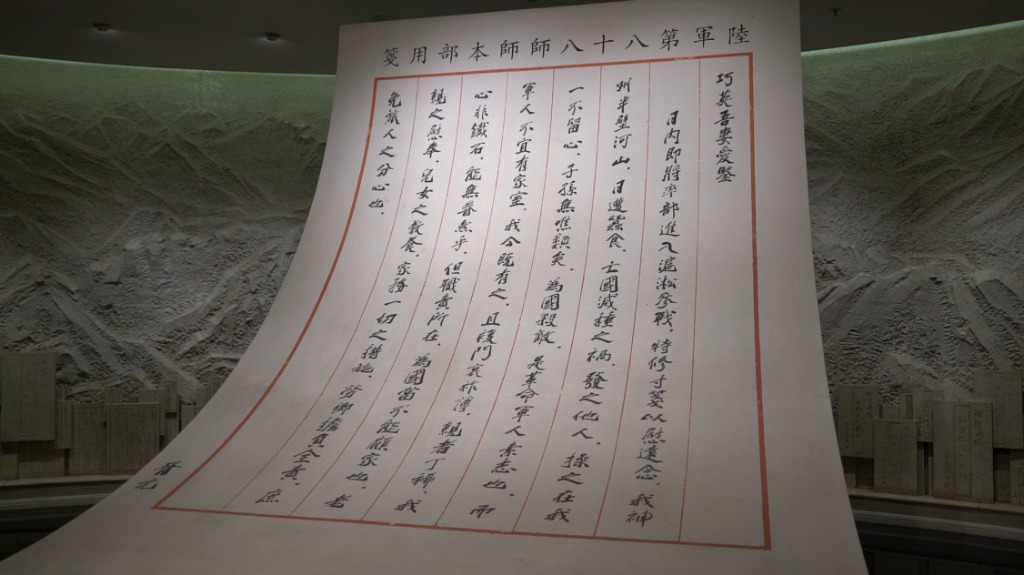 陸軍第八十八師師本部用箋
巧英吾妻愛鑒
日內即將率部進入滬淞參戰、特修寸箋以慰遠念、我神
州半壁河山、日遭蠶食、亡國滅種之禍、發之他人、操之在我
一不留心、子孫無噍類矣、為國殺敵、是革命軍人素志也、而
軍人不宜有家室、我今既有之、且後門衰祚薄、親者丁稀、我
心非鐵石、能無眷然乎、但職責所在、為國當不能顧家也、老
親之慰奉、兒女之教養、家務一切之措施、勞卿擔負全責、庶
免旅人之分心也、
晉元